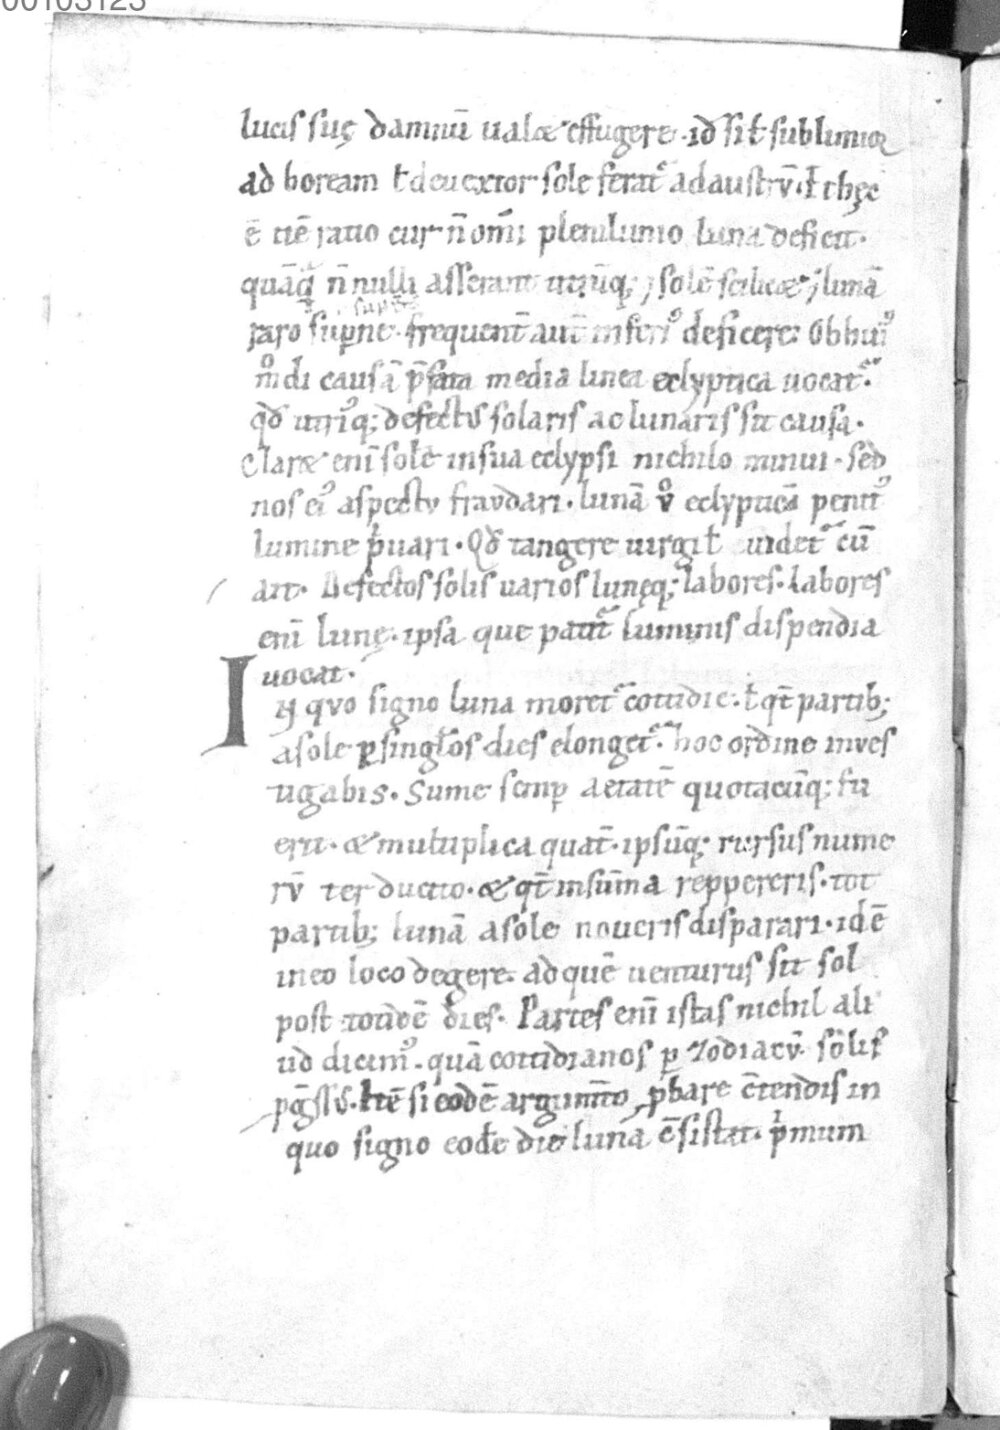 00103123
lucis suę damnū ualæ effugere · id sit ł sublimior
ad boream ł deuexior sole ferat᷑ ad austrū · ł hęc
ē ratio cur n̄ om̄i plenilunio luna deficit ·
quāq̄ n̄nulli asserant utrūq; solē scilicæ ⁊ lunā
raro supne · frequent̄ aut̄ inferi᷒ deficere · Ob hui᷒
m̊di causā p̄fata media linea eclyptica uocat᷑ ·
qđ utri᷒q; defectus solaris ac lunaris sit causa ·
Claræ enī solē in sua eclypsi nichilo minui · sed
nos ei᷒ aspectu fraudari · lunā v̊ eclypticā penit᷒
lumine pͥuari · Qđ tangere uirgił uidet᷑ cū
ait · Defectos solis uarios lunęq; labores · Labores
enī lunę · ipsa que patit᷑ luminis dispendia
uocat ·
In quo signo luna moret᷑ cottidie · ł qt̄ partib;
a sole ꝑ singłos dies elonget᷑ · hoc ordine inves
tigabis · Sume semꝑ aetatē quotacūq; fu
erit · & multiplica quat̄ · ipsūq; rursus nume
rū ter ducito · & qt̄ in sum̄a reppereris · tot
partib; lunā a sole noueris disparari · idē
in eo loco degere · ad quē uenturus sit sol
post totidē dies · Partes enī istas nichil ali
ud dicim᷒ · quā cottidianos ꝑ zodiacū solis
ꝓgssus · Itē si eodē argum̄to ꝓbare c̄tendis in
quo signo eodē die luna c̄sistat · pͥmum